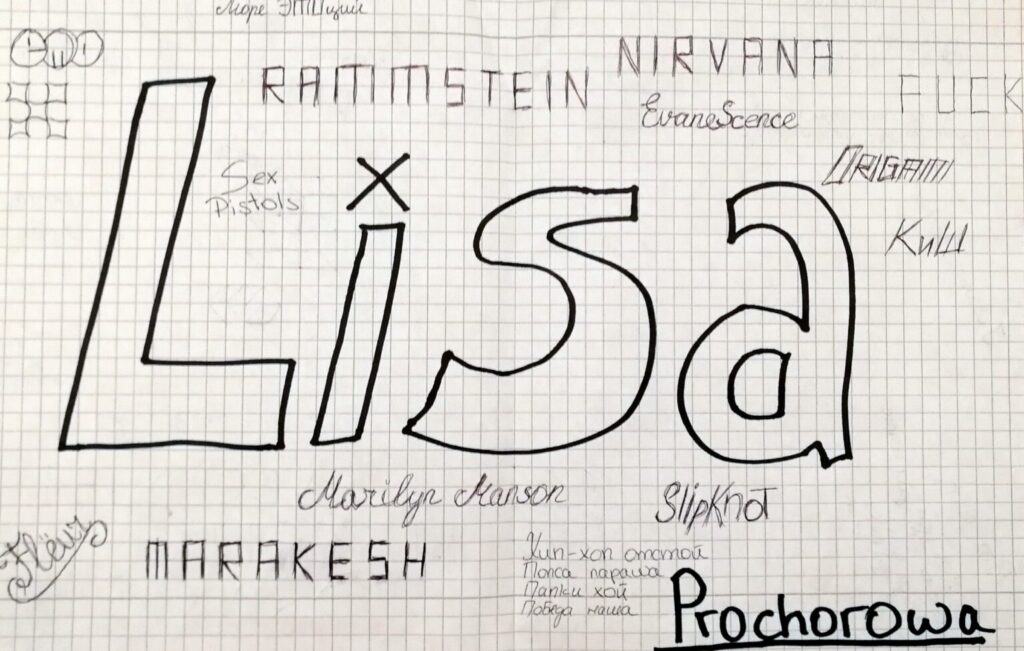 Море ЭМОций
RAMMSTEIN
NIRVANA
EvaneScence
FUCK
Sex
Pistols
Lisa
ORIGAMI
КиШ
Marilyn Manson
SlipKnoT
Flëur
MARAKESH
Хип-хоп отстой
Попса параша
Панки хой
Победа наша
Prochorowa